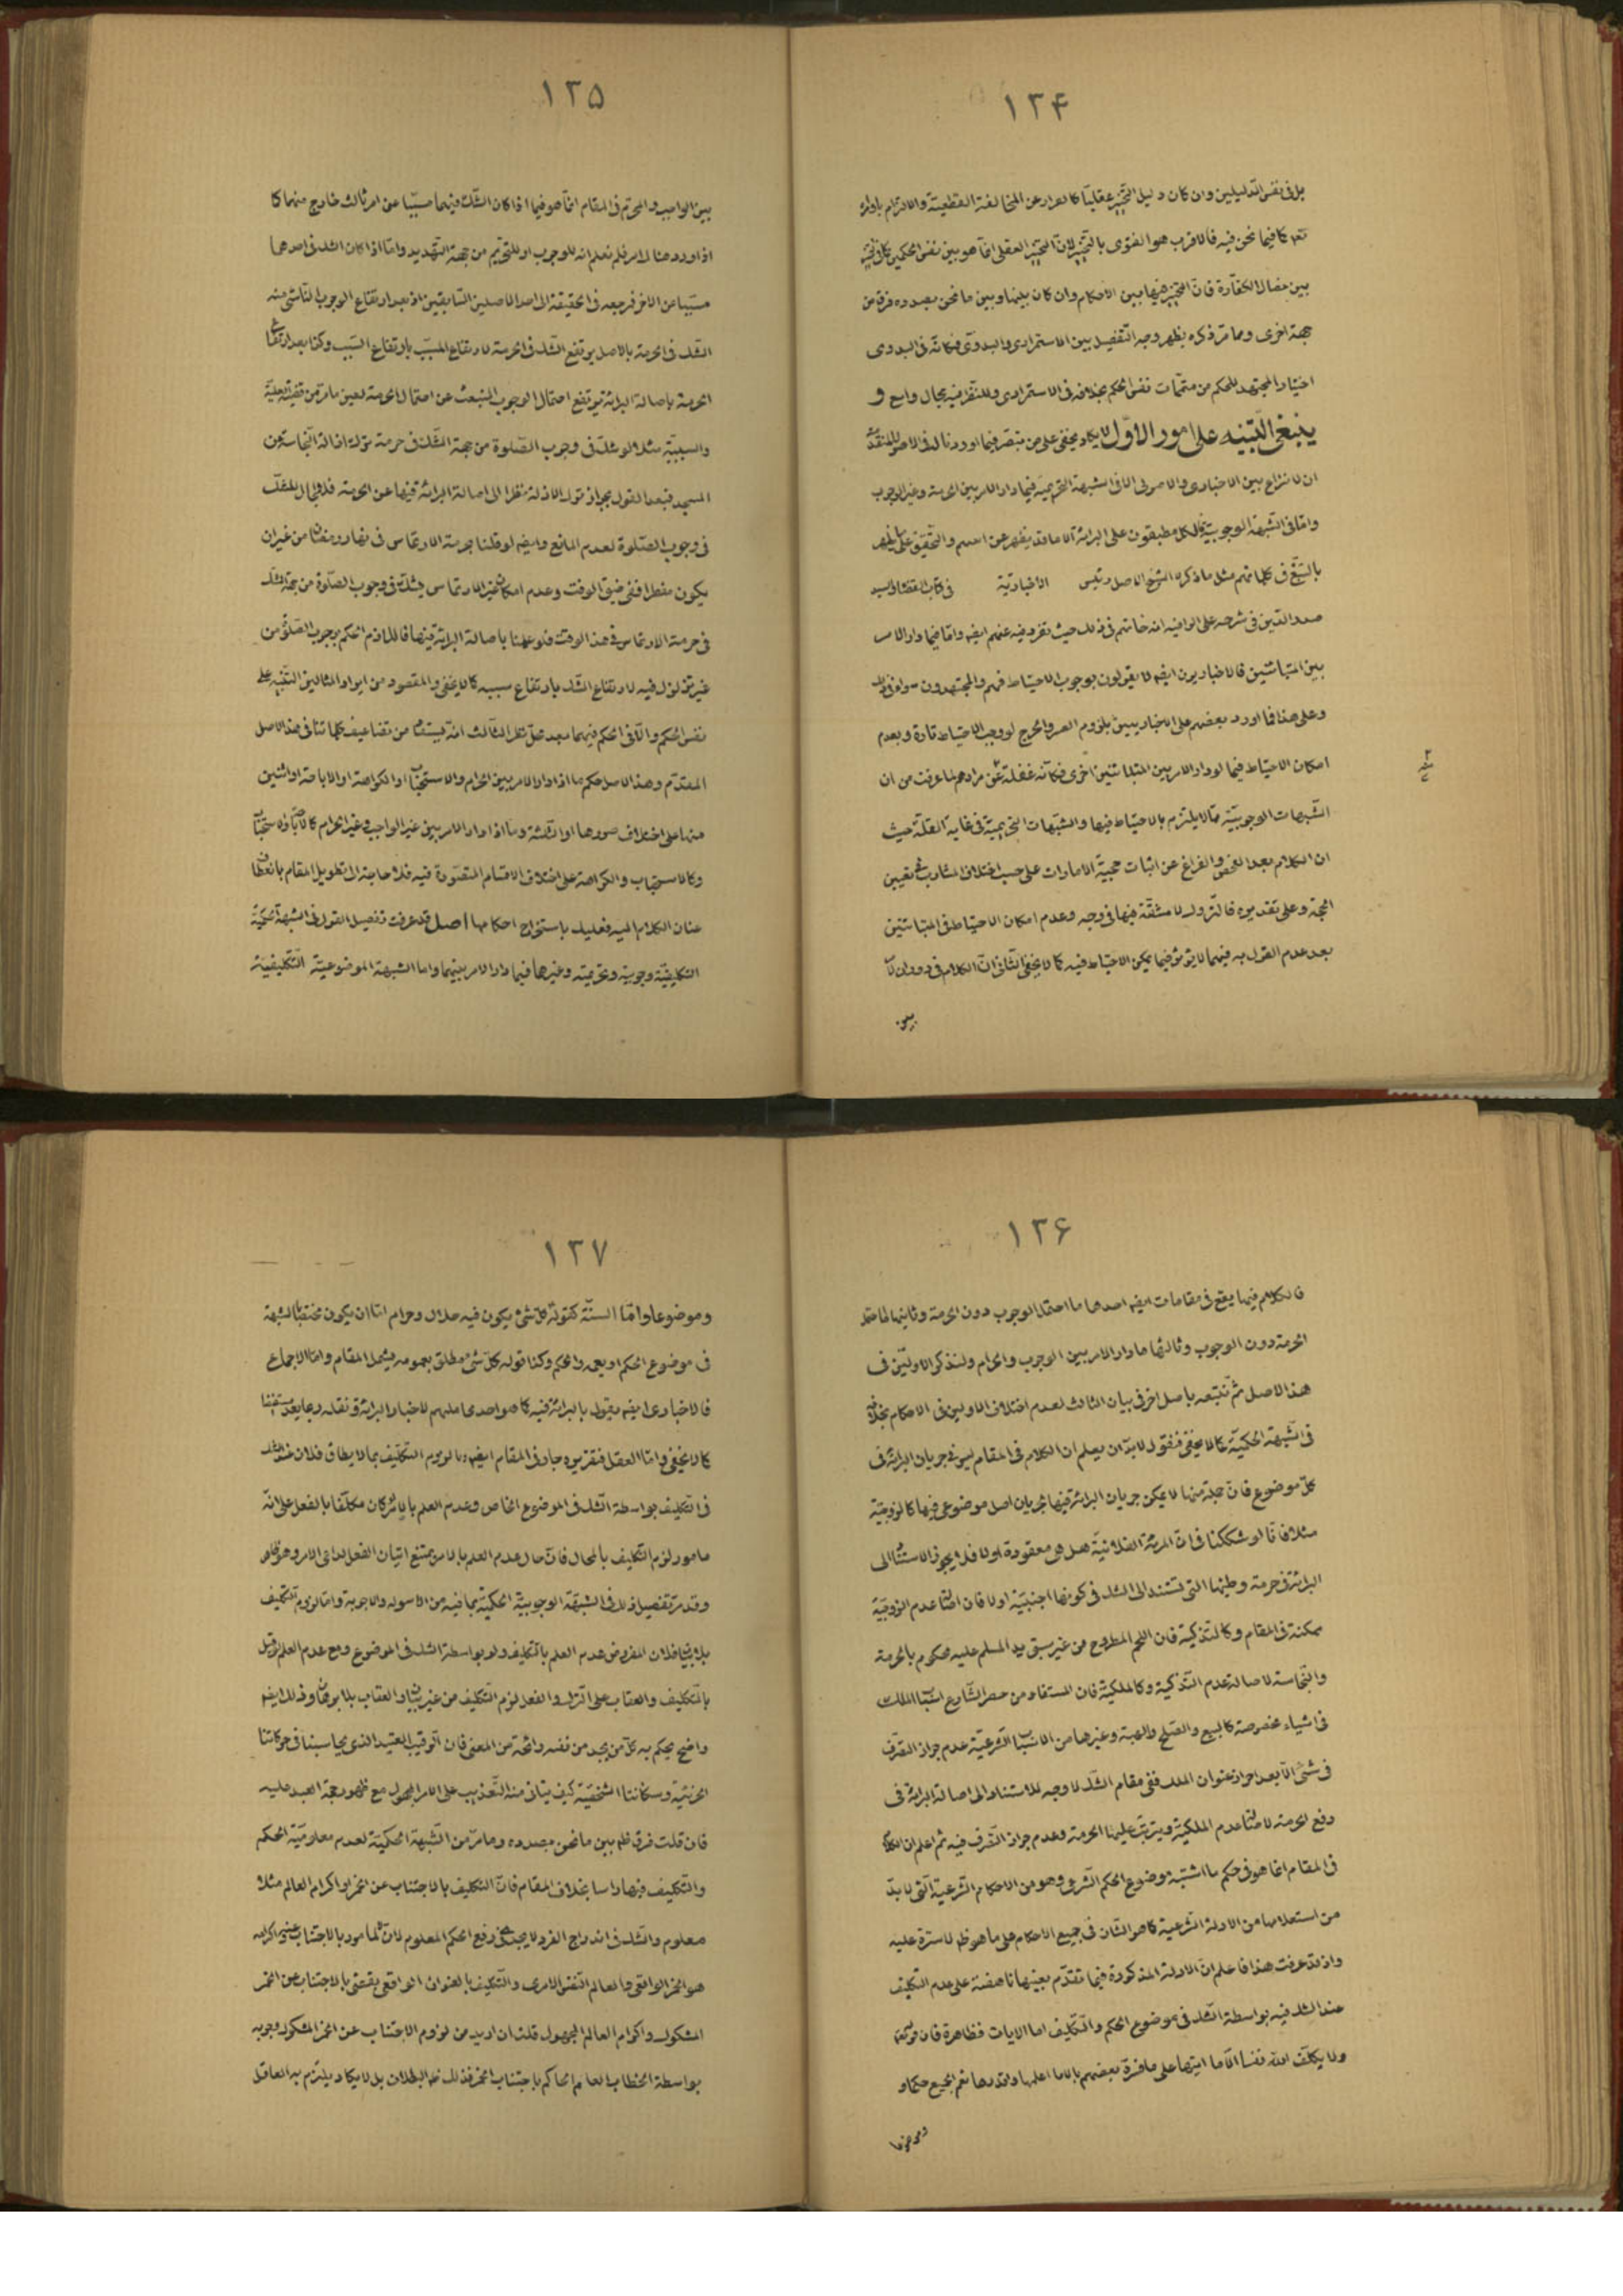 ۱۳۴
بل فى نفس الدليلين وان كان دليل التخيير عقليا كالفرار عن المخالفة القطعية والالتزام باولة
نعم كما فيما نحن فيه فالاقرب هو الفتوى بالتخيير لان التخيير العقلى انما هو بين نفس الحكمين كالتخيير
بين خصال الكفارة فان التخيير فيها بين الاحكام وان كان بينها وبين ما نحن بصدده فرق من
جهة اخرى ومما مر ذكره يظهر وجه التفصيل بين الاستمرارى والبدوى فكانه فى البدوى
اختيار المجتهد للحكم من متممات نفس الحكم بخلافه فى الاستمرارى وللنظر فيه مجال واسع و
ينبغى التنبيه على امور الاول لا يكاد يخفى على من تبصر فيما اوردنا له فى الاصول المتقدمة
ان لا نزاع بين الاخبارى والاصولى الا فى الشبهة التحريمية فيما دار الامر بين الحرمة وغير الوجوب
واما فى الشبهة الوجوبية فالكل مطبقون على البرائة الا ما قد يظهر عن بعضهم والتحقيق على ما يظهر
بالتتبع فى كلماتهم مثل ما ذكره الشيخ الاصل رئيس الاخبارية فى كتاب القضاء والسيد
صدر الدين فى شرحه على الوافيه انه خاتمهم فى ذلك حيث نفى فيه عنهم ايضا واما فيما دار الامر
بين المتباينين فالاخباريون ايضا لا يقولون بوجوب الاحتياط فهم والمجتهدون سواء فى ذلك
وعلى هذا فما اورد بعضهم على الاخباريين بلزوم العسر والحرج لو وجب الاحتياط تارة وبعدم
امكان الاحتياط فيما لو دار الامر بين المتباينين اخرى فكانه غفلة عن مرادهم لما عرفت من ان
الشبهات الوجوبية مما لا يلتزم بالاحتياط فيها والشبهات التحريمية فى غاية القلة حيث
ان الكلام بعد الفحص والفراغ عن اثبات حجية الامارات على حسب اختلاف المشارب فى تعيين
الحجة وعلى تقديره فالترك لا مشقة فيها فى وجه وعدم امكان الاحتياط فى المتباينين
بعد عدم القول به فيهما لا يؤثر فيما يمكن الاحتياط فيه كما لا يخفى الثانى ان الكلام فى دوران الامر
بين
۱۳۵
بين الواجب والمحرم فى المقام انما هو فيما اذا كان الشك فيهما مسببا عن امر ثالث خارج منهما كما
اذا ورد هنا امر فلم نعلم انه للوجوب او للتحريم من جهة التهديد واما اذا كان الشك فى احدهما
مسببا عن الاخر فمرجعه فى الحقيقة الى احد الاصلين السابقين اذ بعد ارتفاع الوجوب الناشى منه
الشك فى الحرمة بالاصل يرتفع الشك فى الحرمة لارتفاع المسبب بارتفاع السبب وكذا بعد ارتفاع
الحرمة باصالة البرائة يرتفع احتمال الوجوب المنبعث عن احتمال الحرمة لعين ما مر من قضية العلية
والسببية مثلا لو شك فى وجوب الصلوة من جهة الشك فى حرمة ترك ازالة النجاسة عن
المسجد فبعد القول بجواز ترك الازالة نظرا الى اصالة البرائة فيها عن الحرمة فلا مجال للشك
فى وجوب الصلوة لعدم المانع وايضا لو قلنا بحرمة الارتماس فى نهار رمضان من غير ان
يكون مفطرا ففى ضيق الوقت وعدم امكان غير الارتماس يشك فى وجوب الصلوة من جهة الشك
فى حرمة الارتماس فى هذا الوقت فلو عملنا باصالة البرائة فيها فاللازم الحكم بوجوب الصلوة من
غير تزلزل فيه لارتفاع الشك بارتفاع سببه كما لا يخفى والمقصود من ايراد المثالين التنبيه على
نفس الحكم والا فى الحكم فيهما بعد محل نظر الثالث انه يستفاد من تضاعيف كلماتنا فى هذا الاصل
المتقدم وهذا الاصل حكم ما اذا دار الامر بين الحرام والاستحباب او الكراهة او الاباحة او اثنين
منها على اختلاف صورها او الثلثة وما اذا دار الامر بين غير الواجب وغير الحرام كالاباحة والاستحباب
وكالاستحباب والكراهة على اختلاف الاقسام المتصورة فيه فلا حاجة الى تطويل المقام بانعطاف
عنان الكلام اليه فعليك باستخراج احكامها اصل قد عرفت تفصيل القول فى الشبهة الحكمية
التكليفية وجوبية وتحريمية وغيرها فيما دار الامر بينهما واما الشبهة الموضوعية التكليفية
۱۳۶
فالكلام فيها يقع فى مقامات ايضا احدها ما احتمل الوجوب دون الحرمة وثانيها ما احتمل
الحرمة دون الوجوب وثالثها ما دار الامر بين الوجوب والحرام ولنذكر الاولين فى
هذا الاصل ثم نتبعه باصل اخر فى بيان الثالث لعدم اختلاف الاولين فى الاحكام بخلافه
فى الشبهة الحكمية كما لا يخفى فنقول لابد ان يعلم ان الكلام فى المقام ليس فى جريان البرائة فى
كل موضوع فان جملة منها لا يمكن جريان البرائة فيها لجريان اصل موضوعى فيها كالزوجية
مثلا فانا لو شككنا فى ان المرئة الفلانية هل هى معقودة او لا فلا يجوز الاستناد الى
البرائة فى حرمة وطيها التى تستند الى الشك فى كونها اجنبية او لا فان اصالة عدم الزوجية
محكمة فى المقام وكالتذكية فان اللحم المطروح من غير سبق يد المسلم عليه محكوم بالحرمة
والنجاسة لاصالة عدم التذكية وكالملكية فان المستفاد من حصر الشارع اسباب الملك
فى اشياء مخصوصة كالبيع والصلح والهبة وغيرها من الاسباب الشرعية عدم جواز التصرف
فى شئ الا بعد احراز عنوان الملك ففى مقام الشك لا وجه للاستناد الى اصالة البرائة فى
رفع الحرمة لاصالة عدم الملكية ويترتب عليها الحرمة وعدم جواز التصرف فيه ثم اعلم ان الكلام
فى المقام انما هو فى حكم ما اشتبه موضوع الحكم الشرعى وهو من الاحكام الشرعية التى لابد
من استعلامها من الادلة الشرعية كما هو الشان فى جميع الاحكام على ما هو ظ لا سترة عليه
واذ قد عرفت هذا فاعلم ان الادلة المذكورة فيما تقدم بعينها ناهضة على عدم التكليف
عند الشك فيه بواسطة الشك فى موضوع الحكم والتكليف اما الايات فظاهرة فان قوله تعالى
ولا يكلف الله نفسا الا ما اتيها على ما فسره بعضهم بالا ما اعلمها وقدرها نعم الجميع حكما و
وموضوعا
۱۳۷
وموضوعا واما السنة كقوله كل شئ يكون فيه حلال وحرام اما ان يكون مختصا بالشبهة
فى موضوع الحكم او يعمه والحكم وكذا قوله كل شئ مطلق بعمومه يشمل المقام واما الاجماع
فالاخبارى ايضا يقول بالبرائة فيه كما هو احد محاملهم لاخبار البرائة ونقله ربما يعد مستفيضا
كما لا يخفى واما العقل فتقريره جار فى المقام ايضا اما لزوم التكليف بما لا يطاق فلان عند الشك
فى التكليف بواسطة الشك فى الموضوع الخاص وعدم العلم بالامر لو كان مكلفا بالفعل على انه
مامور لزم التكليف بالمحال فان حال عدم العلم بالامر يمتنع اتيان الفعل لداعى الامر وهو ظاهر
وقد مر تفصيل ذلك فى الشبهة الوجوبية الحكمية بما فيه من الاسولة والاجوبة واما لزوم التكليف
بلا بيان فلان المفروض عدم العلم بالتكليف ولو بواسطة الشك فى الموضوع ومع عدم العلم لو قيل
بالتكليف والعقاب على الترك والفعل لزم التكليف من غير بيان والعقاب بلا برهان وذلك ايضا
واضح يحكم به كل من يجد من نفسه رائحة من المعنى فان الرقيب العتيد الذى يحاسبنا فى حركاتنا
الجزئية وسكناتنا الشخصية كيف يتاتى منه التعذيب على الامر المجهول مع ظهور حجة العبد عليه
فان قلت فرق ظ بين ما نحن بصدده وما مر من الشبهة الحكمية لعدم معلومية الحكم
والتكليف فيها راسا بخلاف المقام فان التكليف بالاجتناب عن الخمر او اكرام العالم مثلا
معلوم والشك فى اندراج الفرد لا يجدى فى رفع الحكم المعلوم لان المامور بالاجتناب عنه او اكرامه
هو الخمر الواقعى والعالم النفس الامرى والتكليف بالعنوان الواقعى يقتضى بالاجتناب عن الخمر
المشكوك واكرام العالم المجهول قلت ان اريد من لزوم الاجتناب عن الخمر المشكوك وجوبه
بواسطة الخطاب العام الحاكم باجتناب الخمر فذلك ظ البطلان بل لا يكاد يلتزم به العاقل